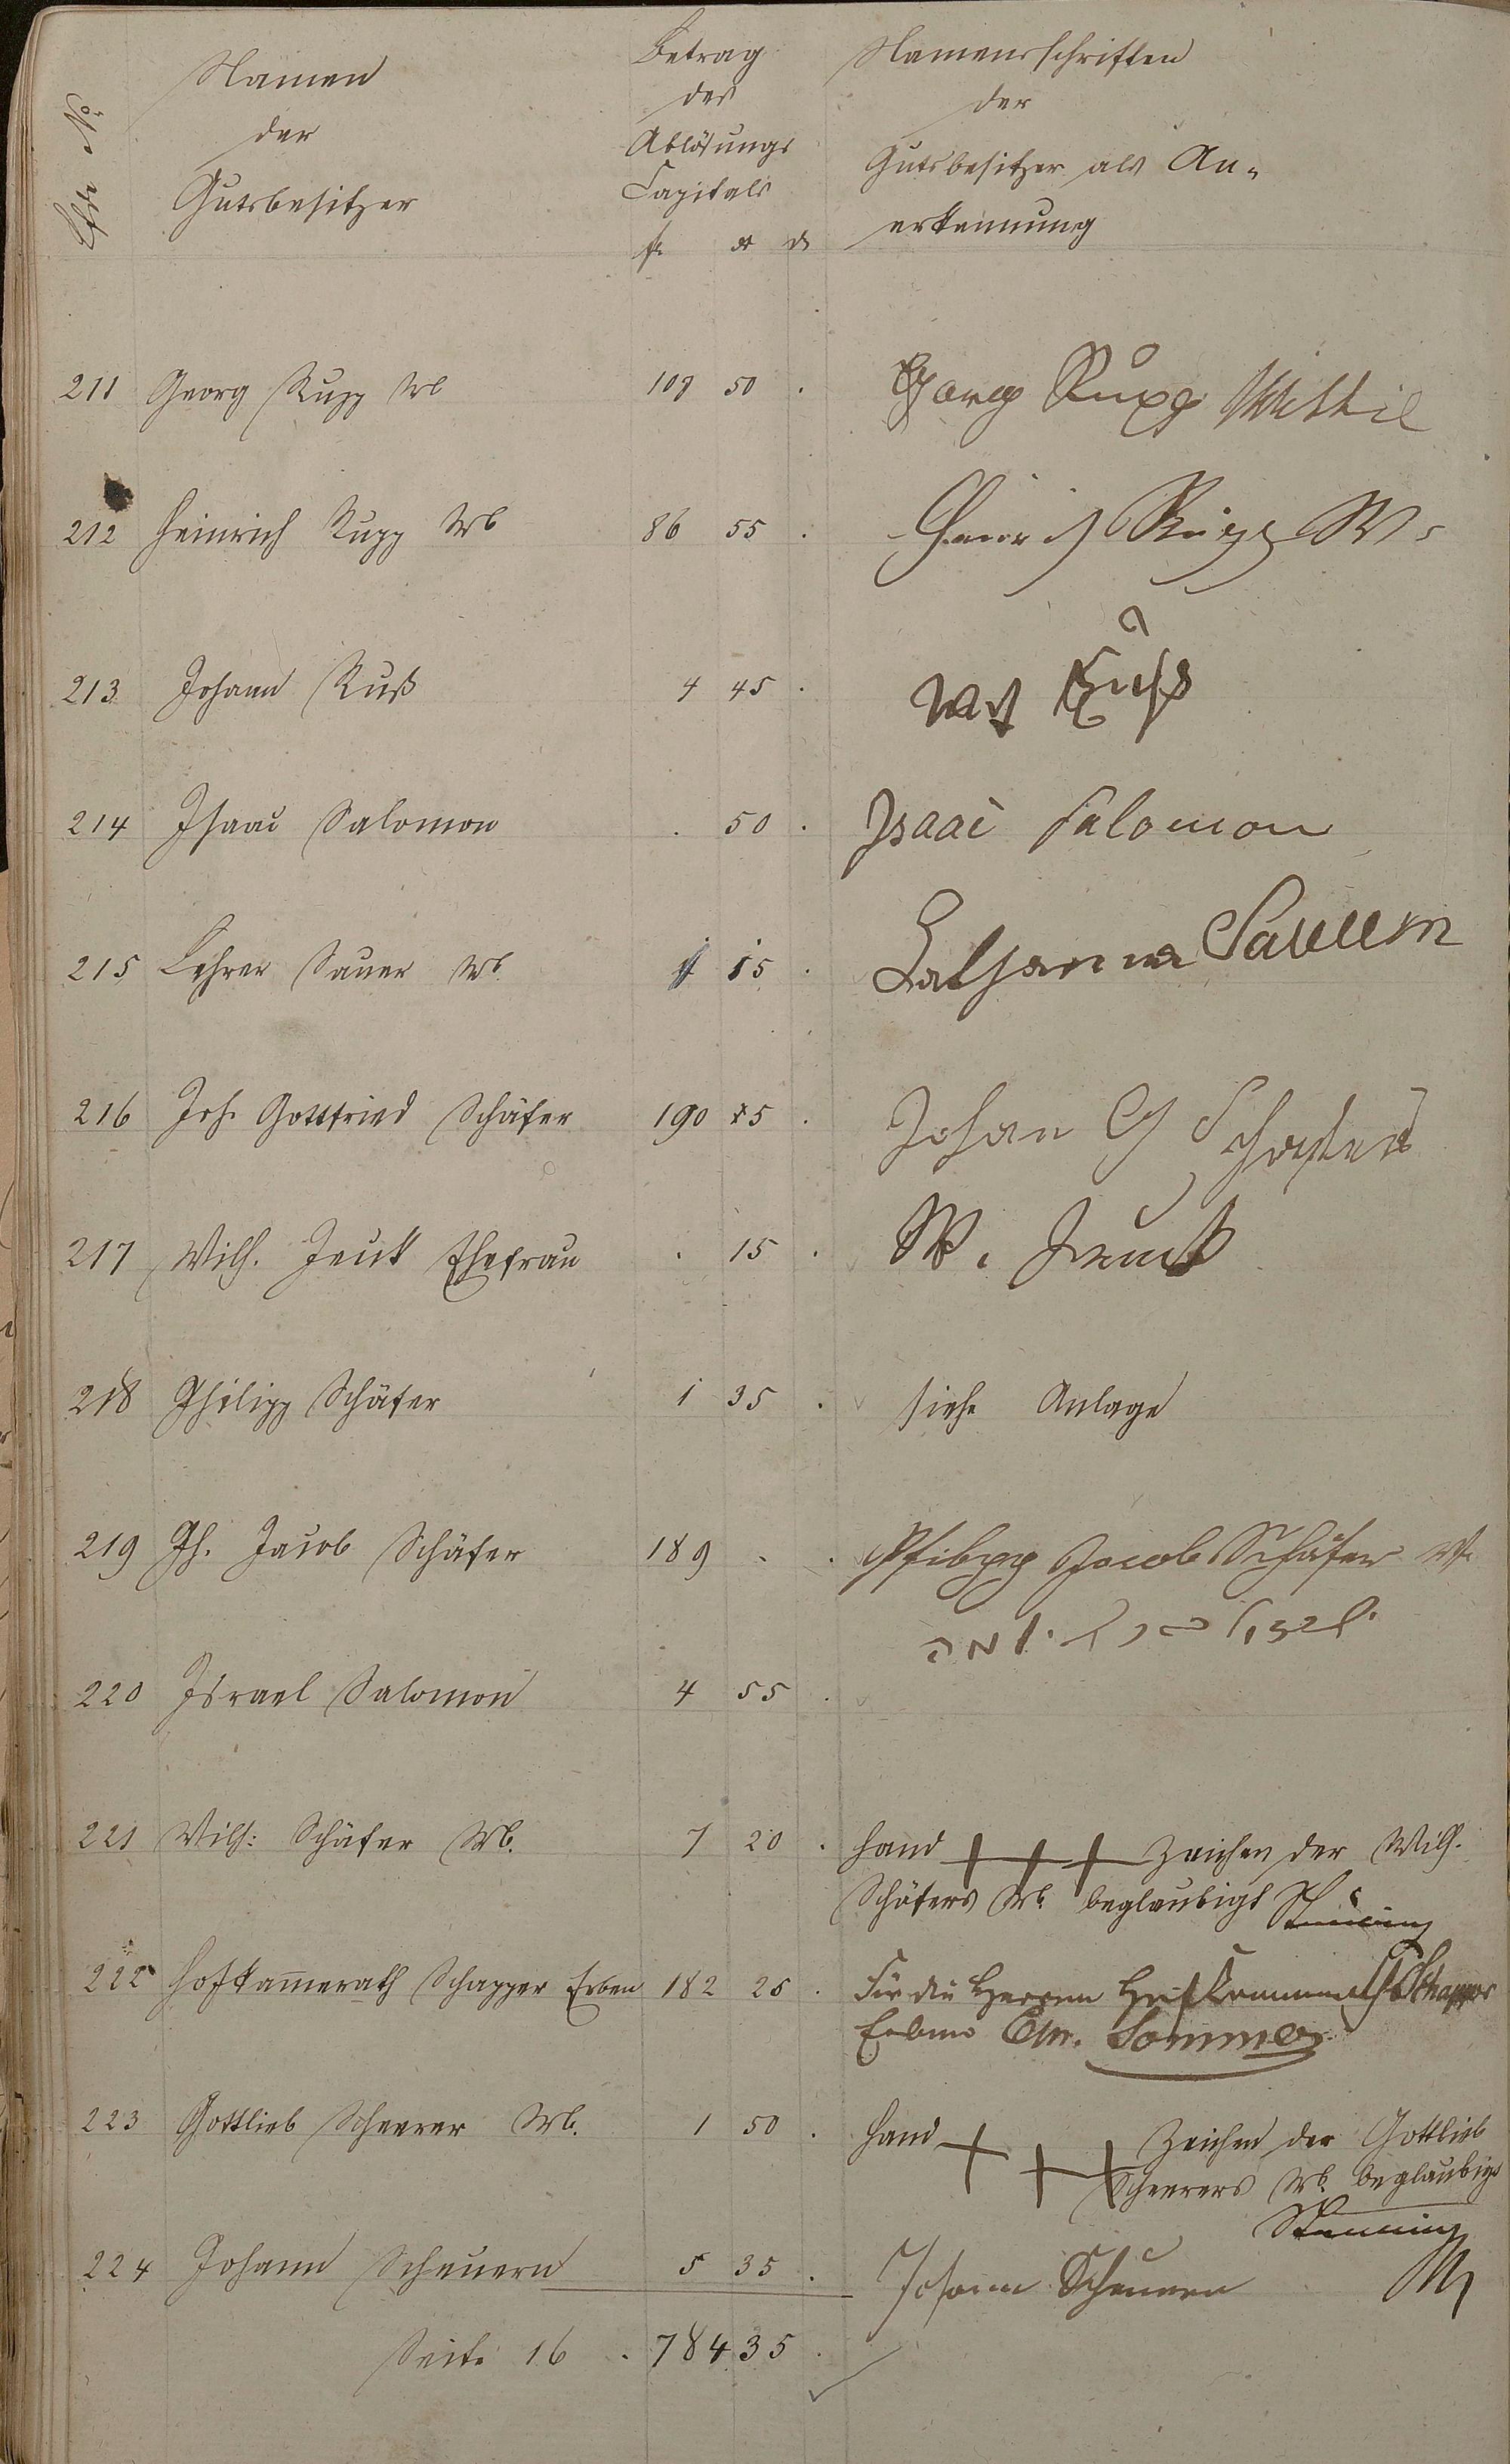 Lfde No
Namen
der
Gutsbesitzer
Betrag
des
Ablösungs
Capitals
fl. xr d
Namensschriften
der
Gutsbesitzer als An-
erkennung
211 Georg Rupp Wb 109 50 . Georg Rupp Wittib
212 Heinrich Rupp Wb 86 55 . Heinrich Rupp W
213 Johann Ruß 4 45 . Ruß
214 Isaac Salomon . 50 . Isaac Salomon
215 Lehrer Sauer Wb. 15 . Sauerin
216 Joh. Gottfried Schäfer 190 5 . Johan G Schäfer
217 Wilh. Jeuk Ehefrau . 15 . W. Jeuk
218 Philipp Schäfer 1 35 . siehe Anlage
219 Ph. Jacob Schäfer 189 . . Philipp Jacob Schäfer
220 Israel Salomon 4 55 .
221 Wilh: Schäfer Wb. 7 20 . Hand +++ Zeichen der Wilh.
Schäfers Wb. beglaubigt
222 Hofkam̄erath Schapper Erben 182 25 . Für die Herren Hofkammerath Schapper
Erben Chr. Sommer
223 Gottlieb Scheerer Wb. 1 50 . Hand +++ Zeichen der Gottlieb
Scheerers Wb. beglaubigt
224 Johann Scheuern 5 35 . Johann Scheuern
Seite 16 . 784 35 .